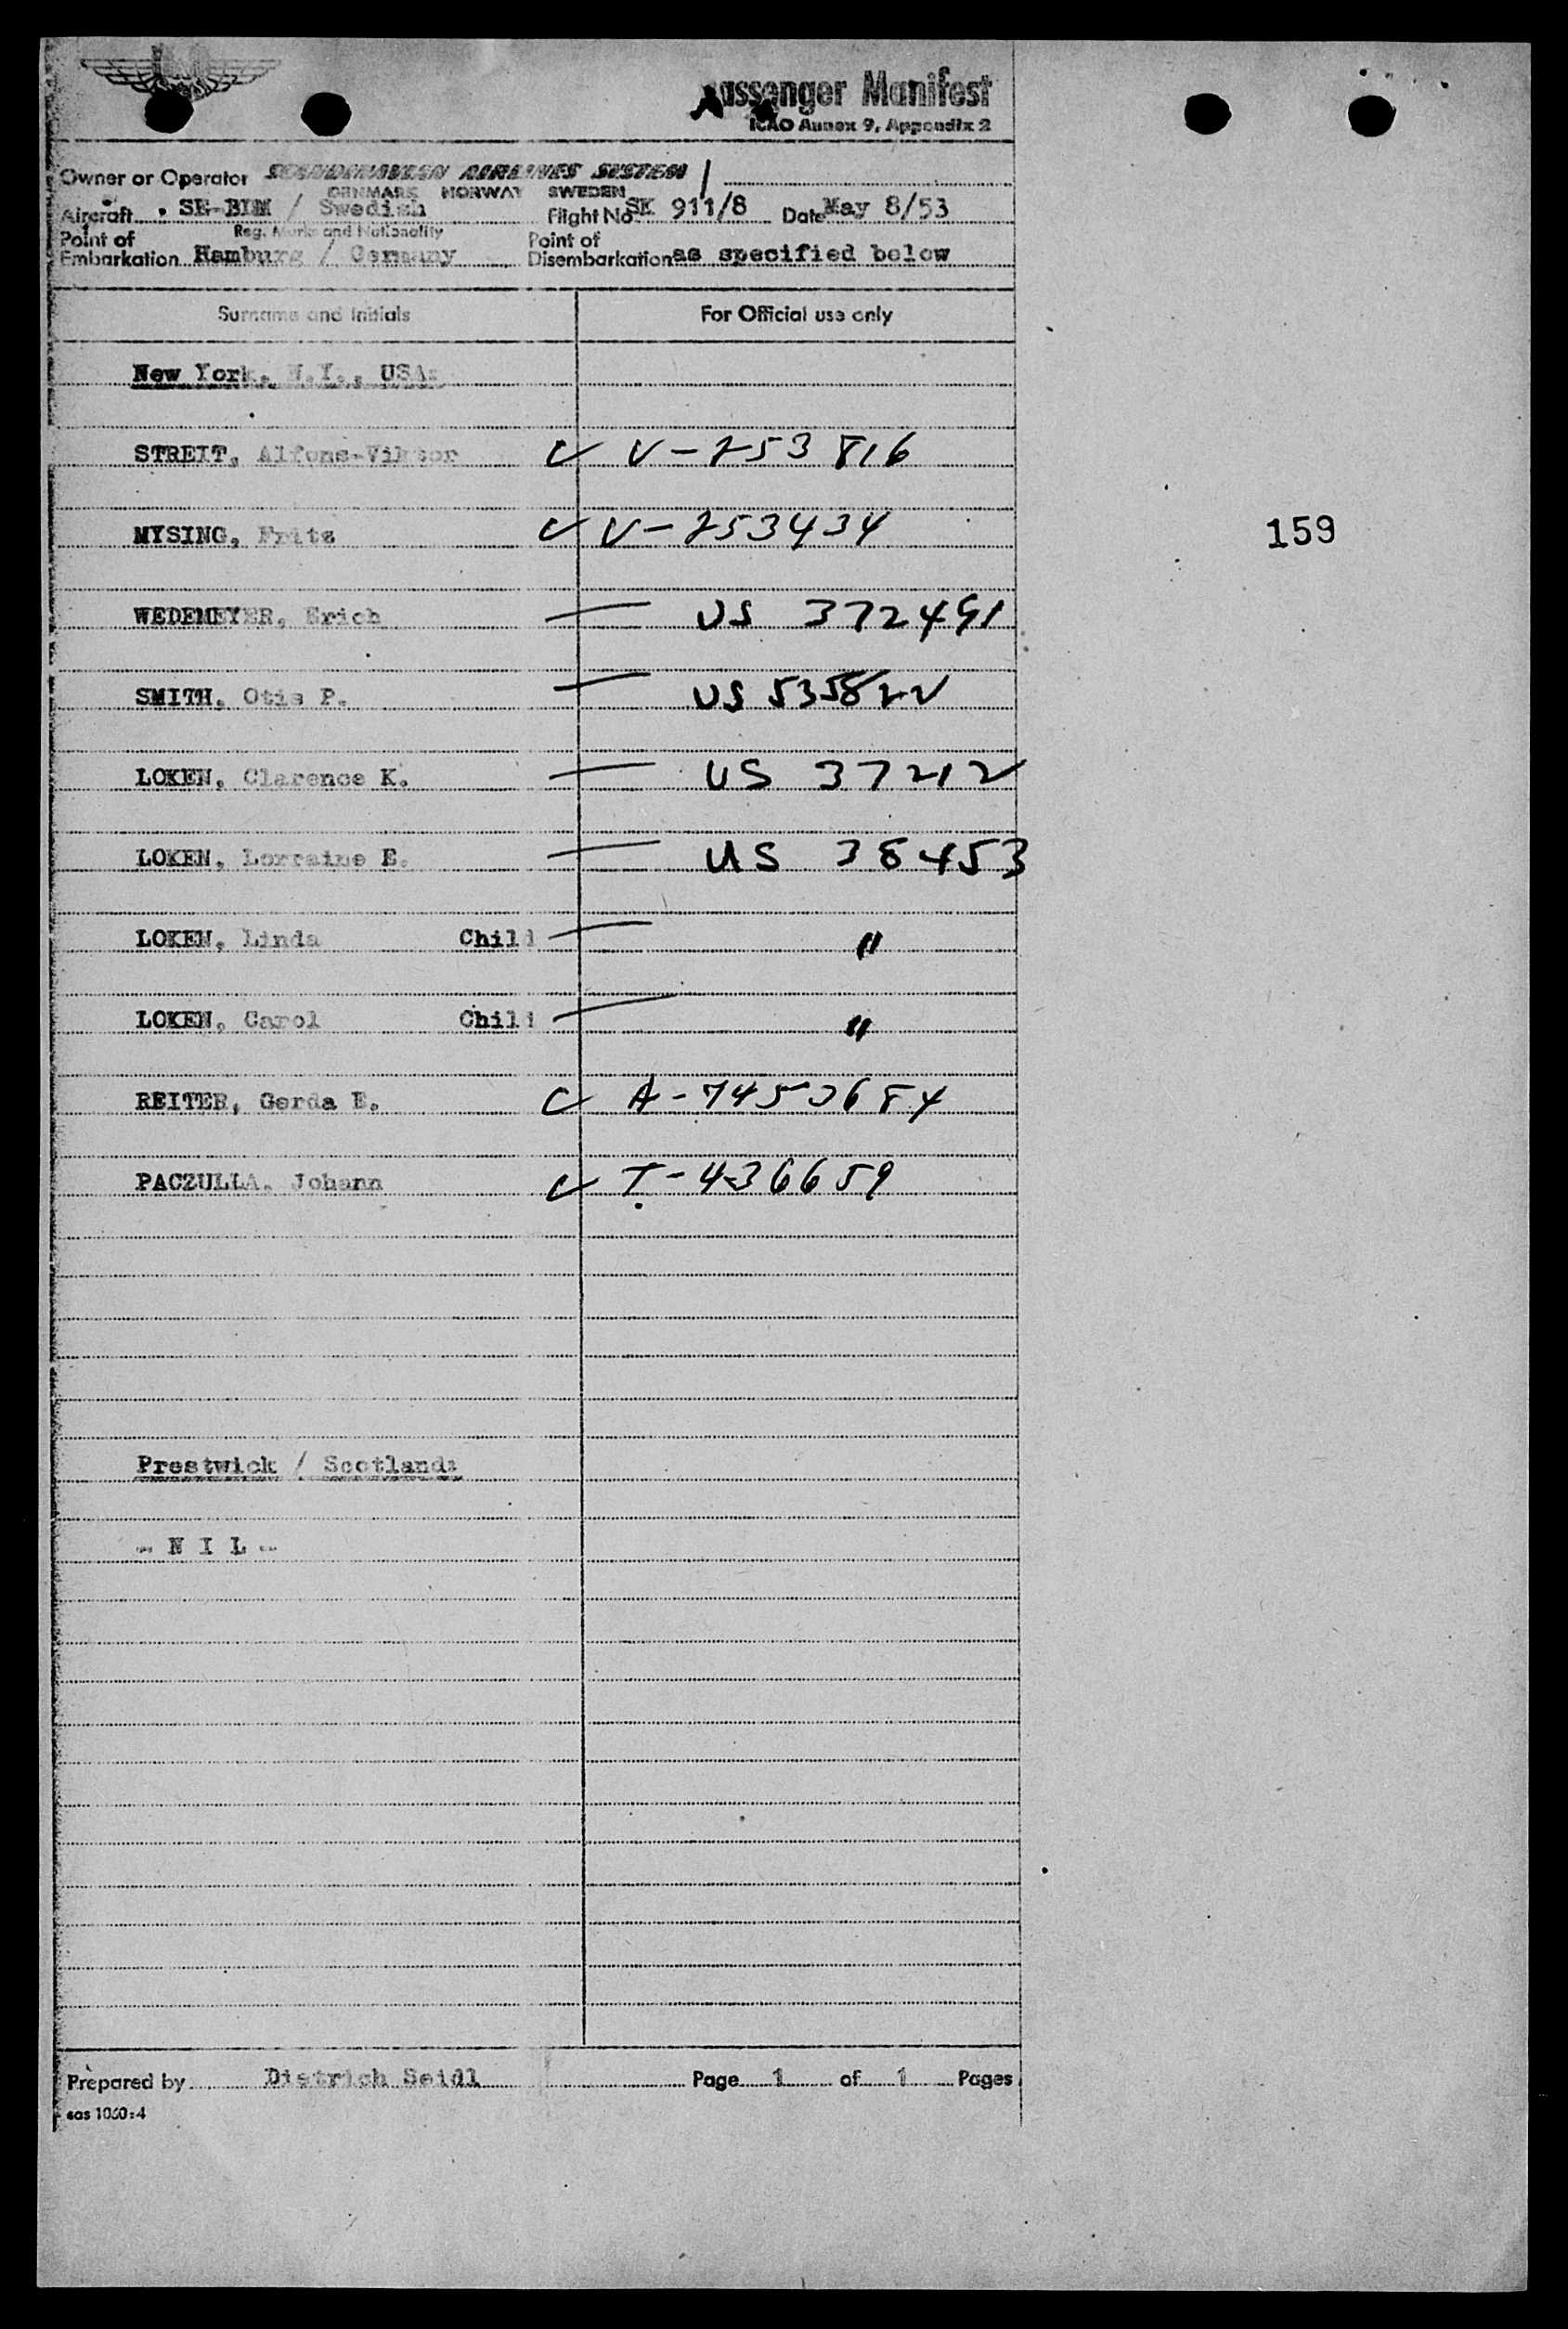 Passenger Manifest
ICAO Annex 9, Appendix 2
Owner or Operator SCANDINAVIAN AIRLINES SYSTEM
DENMARK NORWAY SWEDEN
Aircraft SE-BDM / Swedish Flight No SK 911/8 Date May 8/53
Reg. Marks and Nationality
Point of Embarkation Hamburg / Germany Point of Disembarkation as specified below
Surname and Initials For Official use only
New York, N.Y., USA:
STREIT, Alfons-Viktor V-253816
MYSING, Fritz V-253434
WEDEMEYER, Erich US 372491
SMITH, Otis P. US 535822
LOKEN, Clarence K. US 37212
LOKEN, Lorraine E. US 38453
LOKEN, Linda Child "
LOKEN, Carol Child "
REITER, Gerda E. A-7450684
PACZULLA, Johann T-436659
159
Prestwick / Scotland:
- N I L -
Prepared by Dietrich Seidl Page 1 of 1 Pages
sas 1060:4